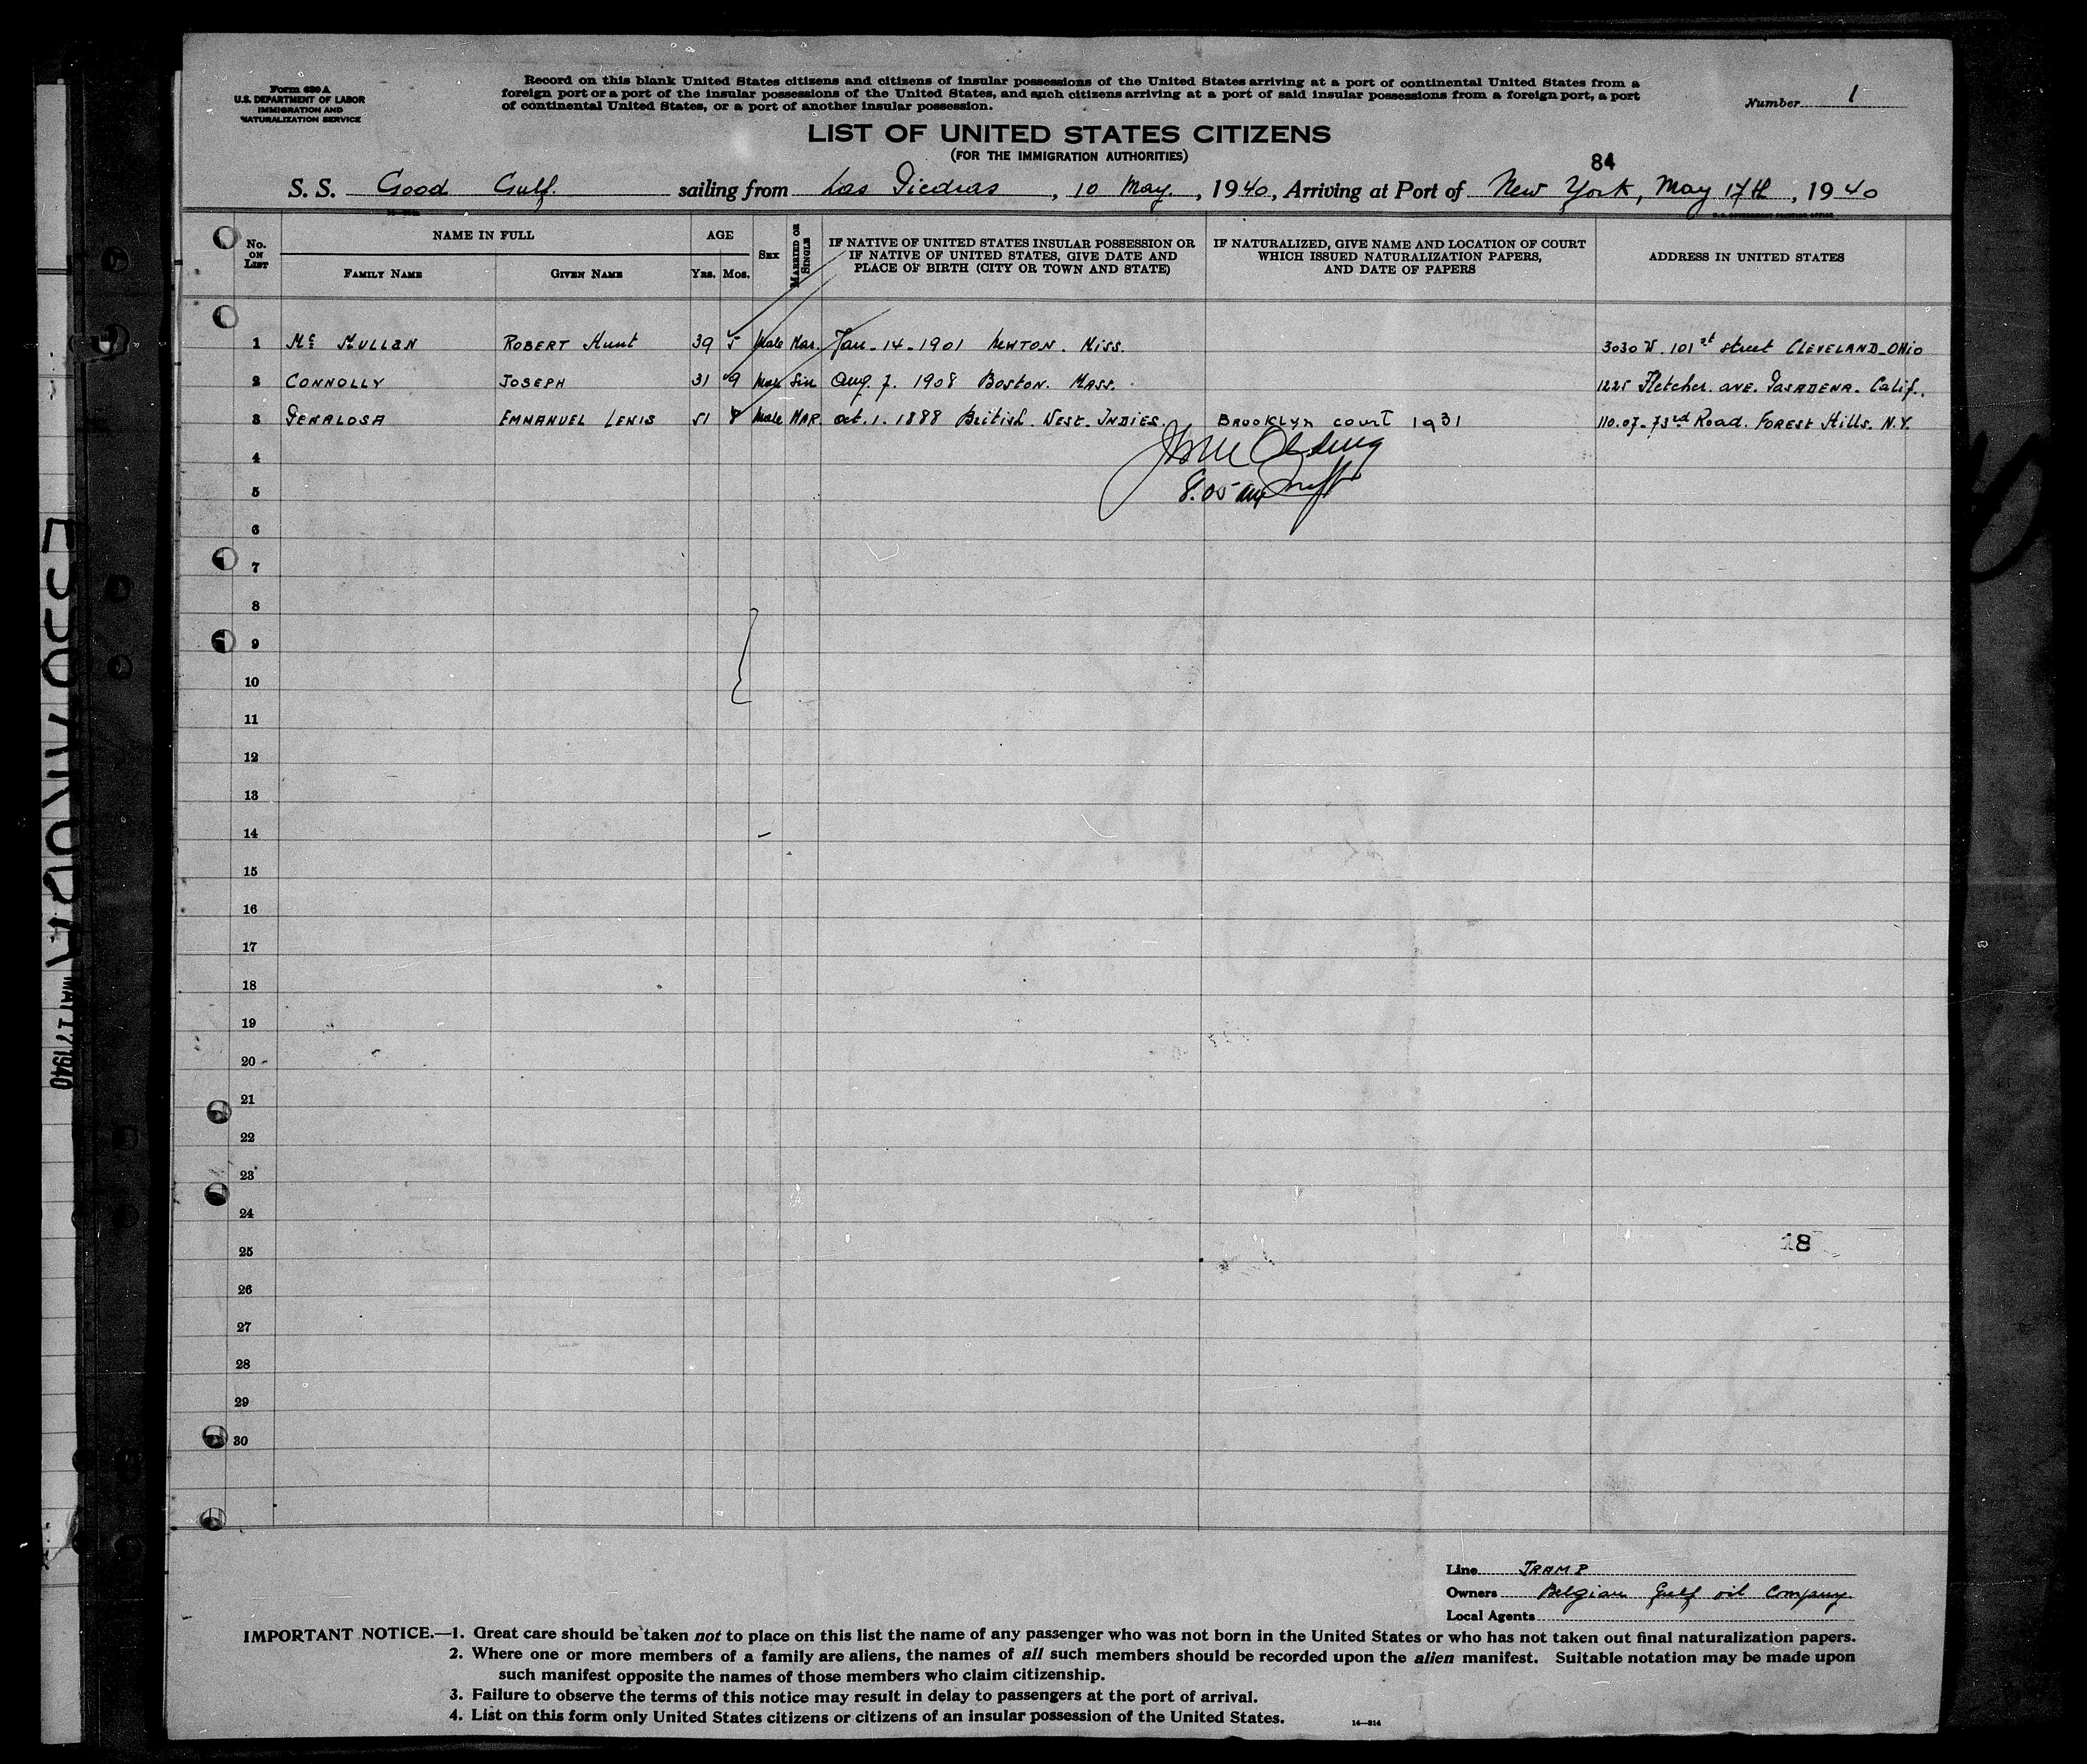 Form 630 A
U.S. DEPARTMENT OF LABOR
IMMIGRATION AND
NATURALIZATION SERVICE
Record on this blank United States citizens and citizens of insular possessions of the United States arriving at a port of continental United States from a
foreign port or a port of the insular possessions of the United States, and such citizens arriving at a port of said insular possessions from a foreign port, a port
of continental United States, or a port of another insular possession.
Number 1
LIST OF UNITED STATES CITIZENS
(FOR THE IMMIGRATION AUTHORITIES)
84
S. S. Good Gulf. sailing from Las Piedras, 10 May, 1940, Arriving at Port of New York, May 17th, 1940
U.S. GOVERNMENT PRINTING OFFICE
No. ON LIST
NAME IN FULL
FAMILY NAME
GIVEN NAME
AGE
Yrs. Mos.
SEX
MARRIED OR SINGLE
IF NATIVE OF UNITED STATES INSULAR POSSESSION OR
IF NATIVE OF UNITED STATES, GIVE DATE AND
PLACE OF BIRTH (CITY OR TOWN AND STATE)
IF NATURALIZED, GIVE NAME AND LOCATION OF COURT
WHICH ISSUED NATURALIZATION PAPERS,
AND DATE OF PAPERS
ADDRESS IN UNITED STATES
1 Mc Mullan ROBERT Hunt 39 5 Male Mar. Jan-14-1901 NEWTON. Miss. 3030 W. 101st Street CLEVELAND-Ohio
2 CONNOLLY JOSEPH 31 9 Male Sin Aug. 7. 1908 BOSTON. MASS. 1225 Fletcher. AVE. PASADENA. Calif.
3 PENALOSA EMMANUEL LEWIS 51 8 Male MAR. oct. 1. 1888 British. West. INDIES. BROOKLYN court 1931 110.07-73rd Road. FOREST Hills. N.Y.
4
5 8.05 am
6
7
8
9
10
11
12
13
14
15
16
17
18
19
20
21
22
23
24
25
18
26
27
28
29
30
Line TRAMP
Owners Belgian Gulf oil Company
Local Agents
IMPORTANT NOTICE.—1. Great care should be taken not to place on this list the name of any passenger who was not born in the United States or who has not taken out final naturalization papers.
2. Where one or more members of a family are aliens, the names of all such members should be recorded upon the alien manifest. Suitable notation may be made upon
such manifest opposite the names of those members who claim citizenship.
3. Failure to observe the terms of this notice may result in delay to passengers at the port of arrival.
4. List on this form only United States citizens or citizens of an insular possession of the United States.
14—814
MAY 17 1940